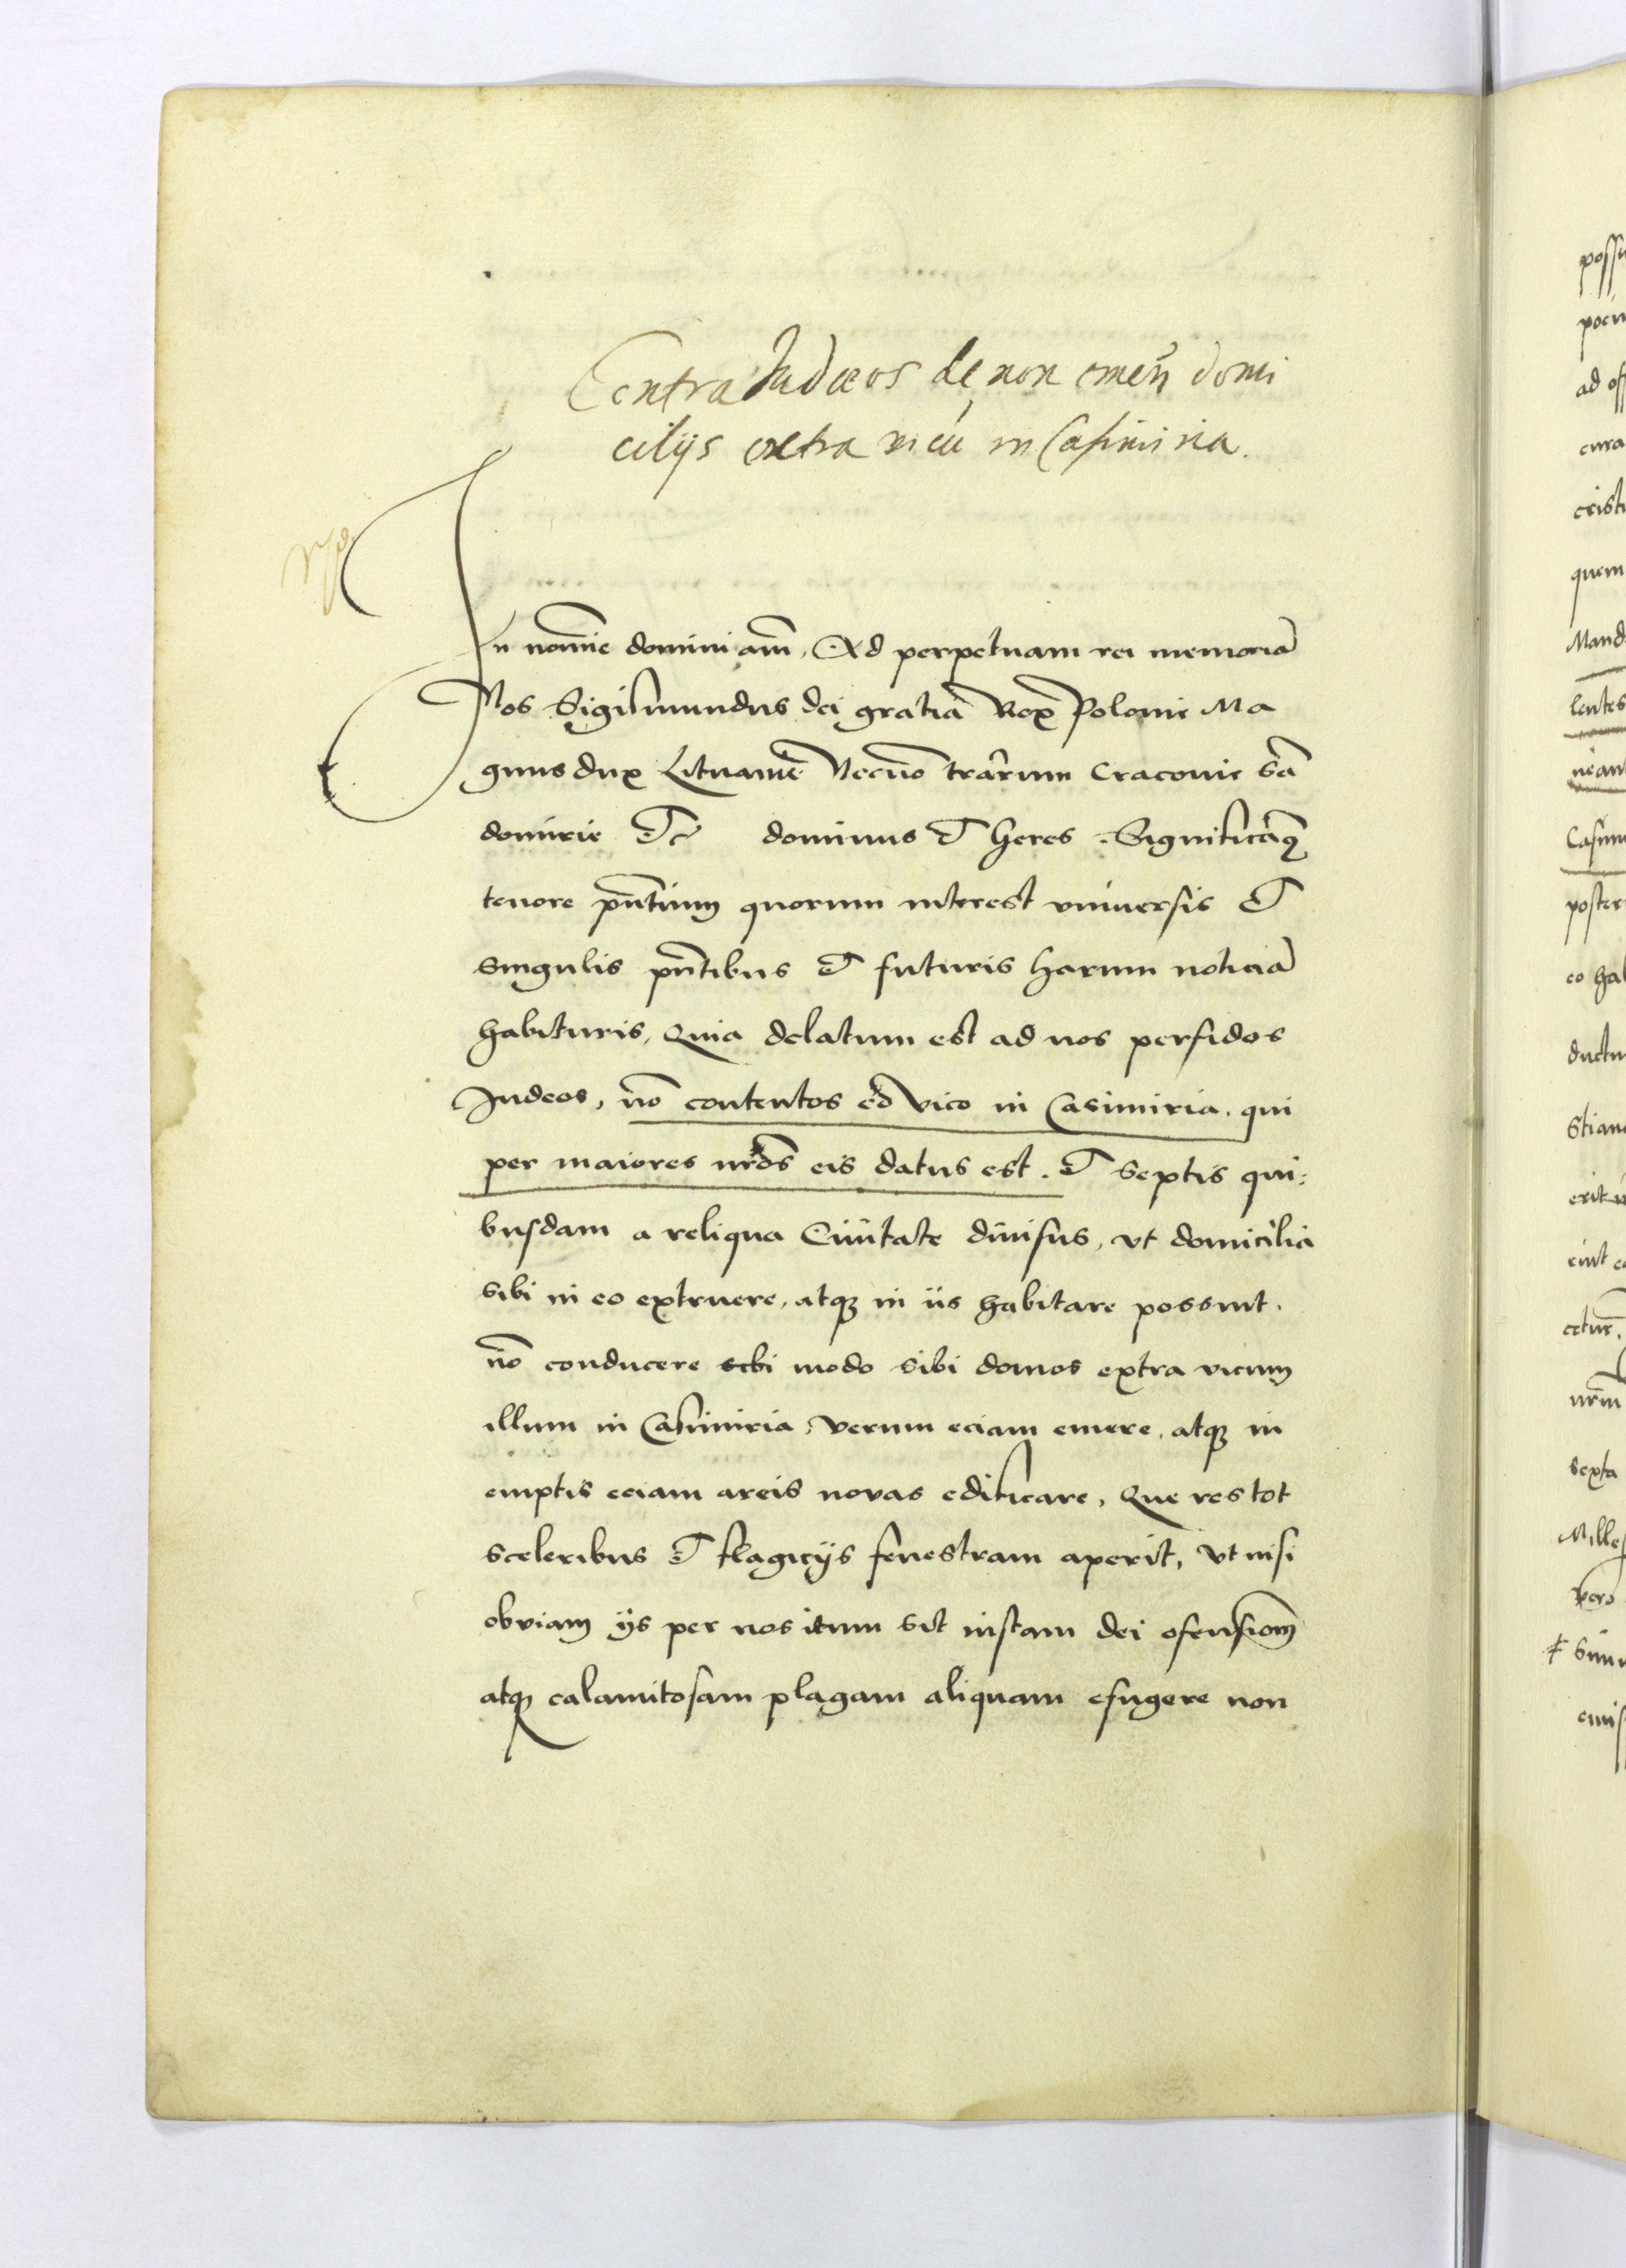 Contra Judæos de non emeñ domi
cilijs extra vicũ in Casimiria.
In nomīe domini am̃, Ad perpetuam rei memoriã
Nos Sigismundus dei gratia Rex Polonie Ma
gnus dux Lituanie Necnõ trãrum Cracouie Sã
domirie Et dominus Et heres. Significamꝰ
tenore pñtium quorum interest vniuersis Et
singulis pñtibus Et futuris harum noticiã
habituris, Quia delatum est ad nos perfidos
Iudeos, nõ contentos eo vico in Casimiria, qui
per maiores nr̃os eis datus est. Et septis qui:
busdam a reliqua Ciuitate diuisus, vt domicilia
sibi in eo extruere, atqꝫ in iis habitare possint.
nõ conducere modo sibi domos extra vicum
illum in Casimiria, verum eciam emere, atqꝫ in
emptis eciam areis novas edificare, Que res tot
sceleribus Et flagicijs fenestram aperit, vt nisi
obviam ijs per nos itum sit iustam dei ofensiom̃
atqꝫ calamitosam plagam aliquam efugere non
possu
pocu
ad off
cura
cristi
quem
Mand
lentes
neant
Casim
poster
eo hab
ductu
Stian
erit
cetur.
nrm̃
sexta
Milles
vero